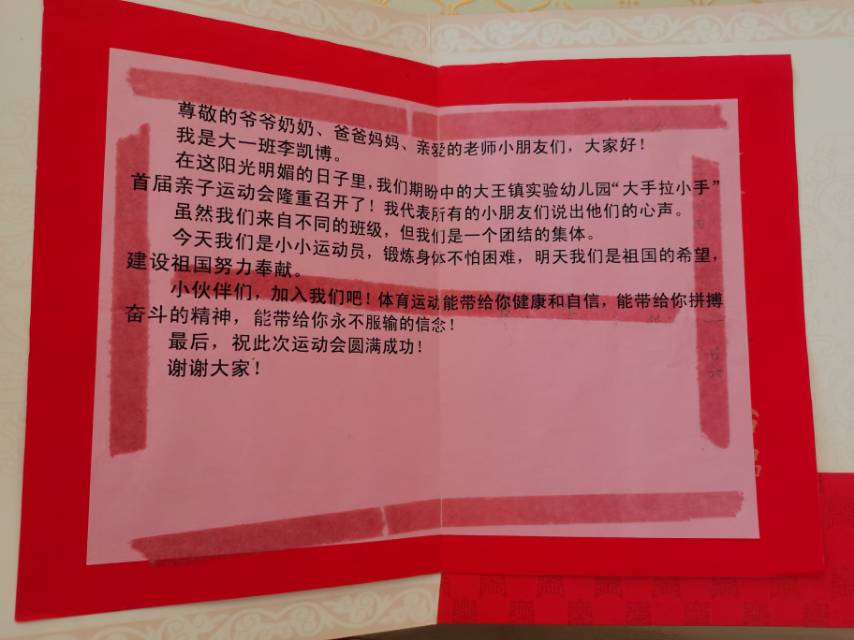 尊敬的爷爷奶奶、爸爸妈妈、亲爱的老师小朋友们，大家好！
我是大一班李凯博。
在这阳光明媚的日子里，我们期盼中的大王镇实验幼儿园“大手拉小手”
首届亲子运动会隆重召开了！我代表所有的小朋友们说出他们的心声。
虽然我们来自不同的班级，但我们是一个团结的集体。
今天我们是小小运动员，锻炼身体不怕困难，明天我们是祖国的希望，
建设祖国努力奉献。
小伙伴们，加入我们吧！体育运动能带给你健康和自信，能带给你拼搏
奋斗的精神，能带给你永不服输的信念！
最后，祝此次运动会圆满成功！
谢谢大家！